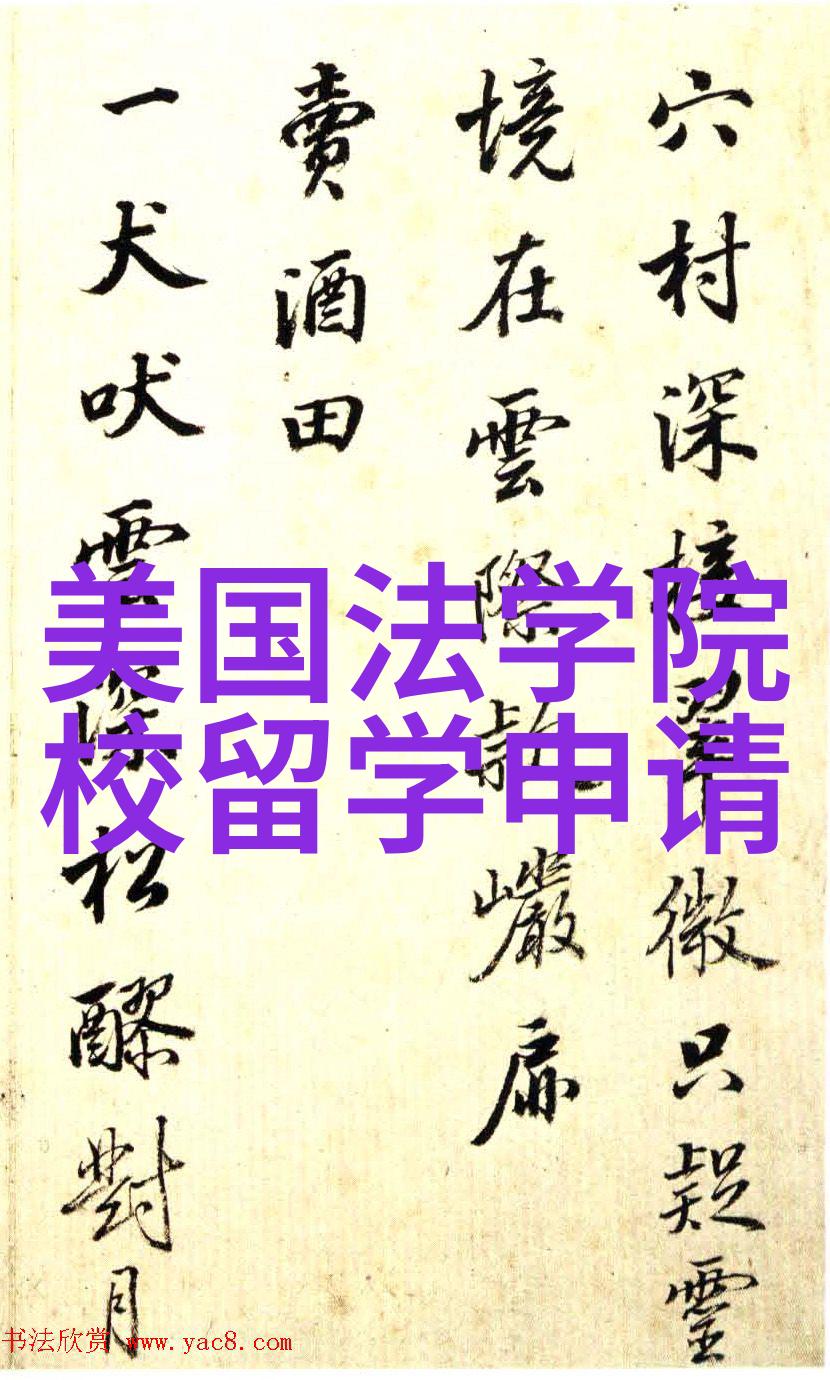 穴村深接翠微只疑靈
境在雲際敲巖扉
賣酒田
一犬吠雲深松醪對月
美国法学院
校留学申请
书法欣赏 www.yac8.com